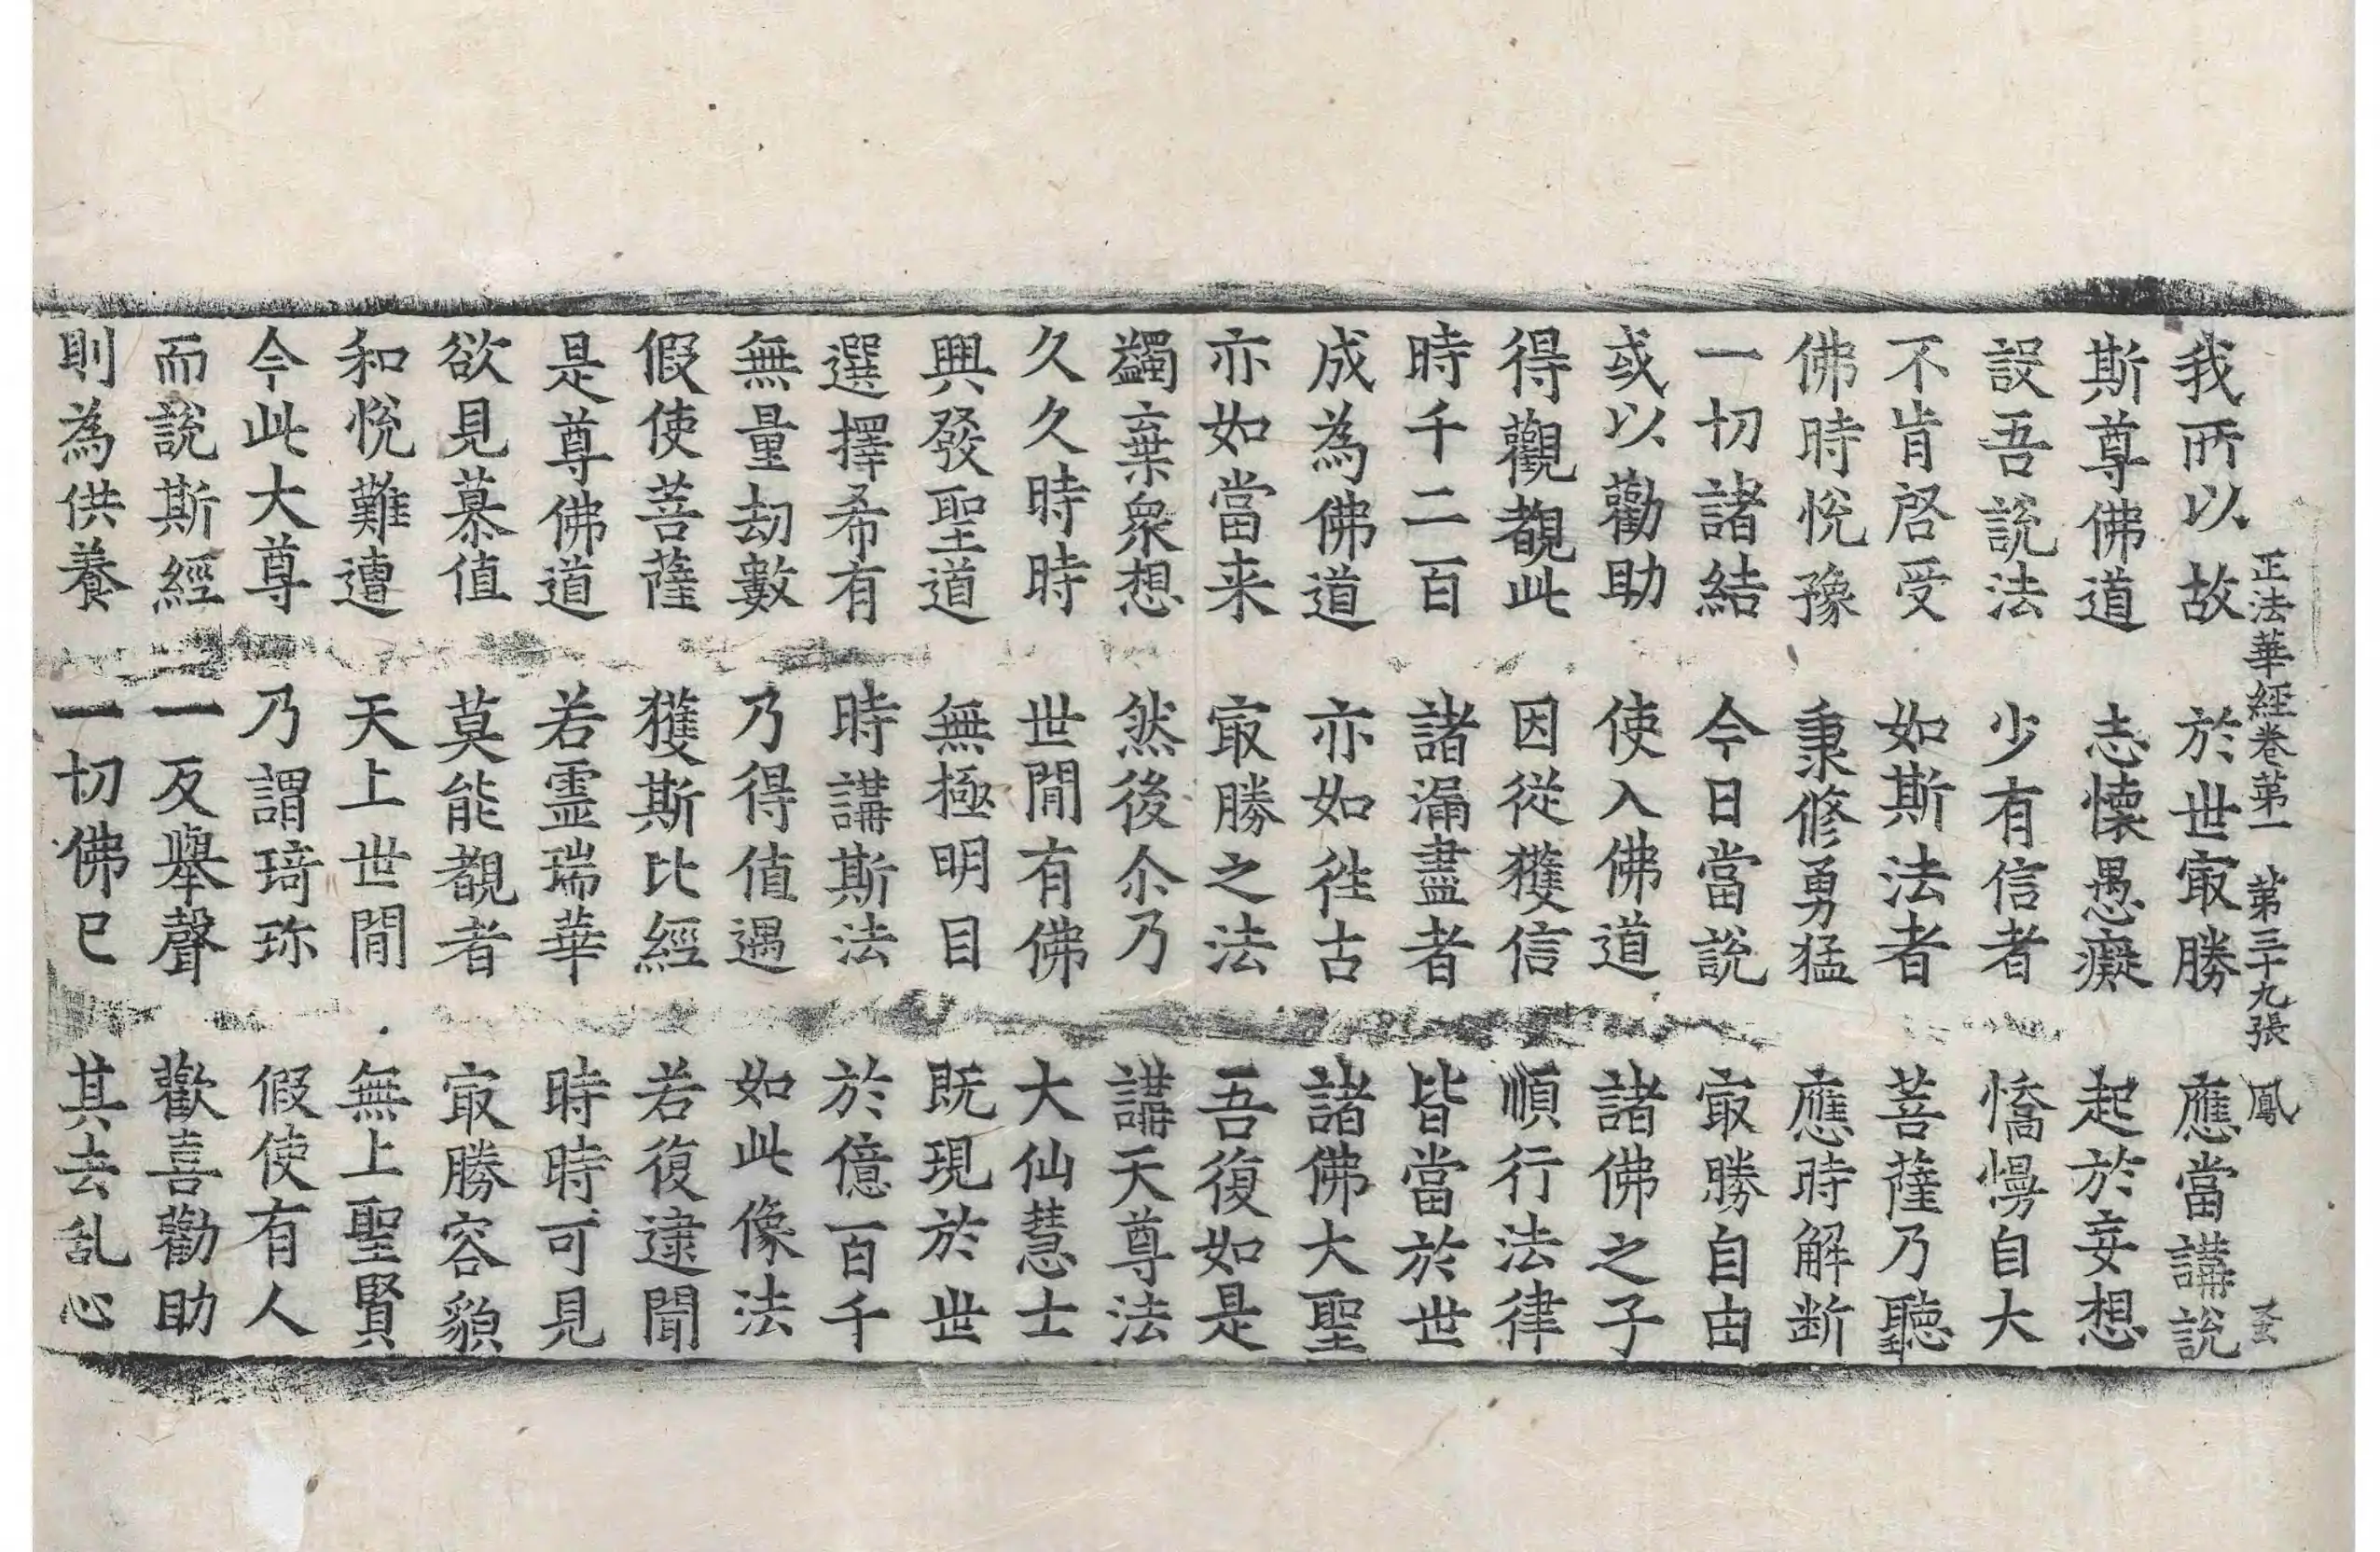 正法華經卷第一 第三十九張 鳳
我所以故 於世㝡勝 應當講說
斯尊佛道 志懷愚癡 起於妄想
設吾說法 少有信者 憍慢自大
不肯啓受 如斯法者 菩薩乃聽
佛時悅豫 秉修勇猛 應時解断
一切諸結 今日當說 㝡勝自由
或以勸助 使入佛道 諸佛之子
得觀覩此 因從獲信 順行法律
時千二百 諸漏盡者 皆當於世
成為佛道 亦如徃古 諸佛大聖
亦如當来 㝡勝之法 吾復如是
蠲棄衆想 然後尒乃 講天尊法
久久時時 世閒有佛 大仙慧士
興發聖道 無極明目 既現於世
選擇希有 時講斯法 於億百千
無量劫數 乃得值遇 如此像法
假使菩薩 獲斯比經 若復逮聞
是尊佛道 若霊瑞華 時時可見
欲見慕值 莫能覩者 㝡勝容貌
和悅難遭 天上世閒 無上聖賢
今此大尊 乃謂琦珎 假使有人
而說斯經 一反舉聲 歡喜勸助
則為供養 一切佛已 其去乱心